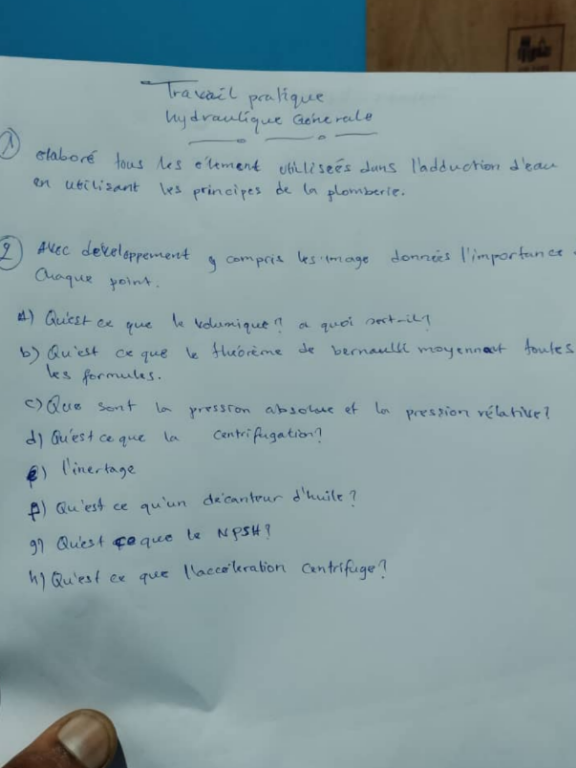 Travail pratique
Hydraulique Génerale
1 elaboré tous les élement utiliseés dans l'adduction d'eau
en utilisant les principes de la plomberie.
2 Avec developpement y compris les image données l'importance
Chaque point.
A) Qu'est ce que le volumique? a quoi sert-il?
b) Qu'est ce que le théorème de bernaulli moyennant toutes
les formules.
c) Que sont la pression absolue et la pression rélative?
d) Qu'est ce que la centrifugation?
e) l'inertage
f) Qu'est ce qu'un décanteur d'huile?
g) Qu'est ce que le NPSH?
h) Qu'est ce que l'accéleration centrifuge?